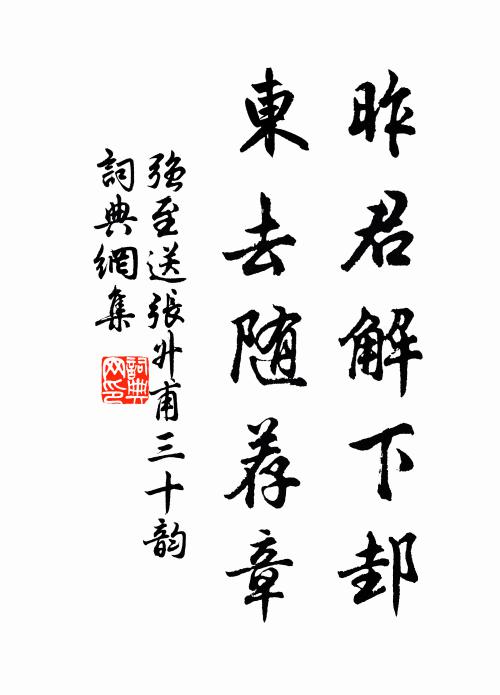 昨君解下邽
東去随荐章
強至送張升甫三十韵
詞典網集
詞典網印